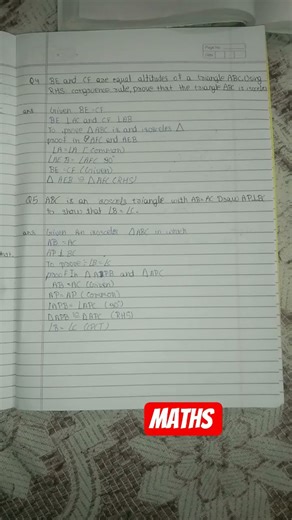 Q4 BE and CF are equal altitudes of a triangle ABC. Using
RHS congruence rule, prove that the triangle ABC is isosceles
ans Given BE = CF
BE ⊥ AC and CF ⊥ AB
To prove △ABC is and isosceles △
proof in △AFC and AEB
∠A = ∠A (common)
∠AEB = ∠AFC 90°
BE = CF (Given)
△AEB ≅ △AFC (RHS)
Q5 ABC is an isosceles triangle with AB=AC Draw AP⊥BC
to show that ∠B = ∠C.
ans Given An isosceles △ABC in which
AB = AC
AP ⊥ BC
To prove : ∠B = ∠C
proof In △APB and △APC
AB = AC (Given)
AP = AP (common)
∠APB = ∠APC (90°)
△APB ≅ △APC (RHS)
∠B = ∠C (CPCT)
MATHS